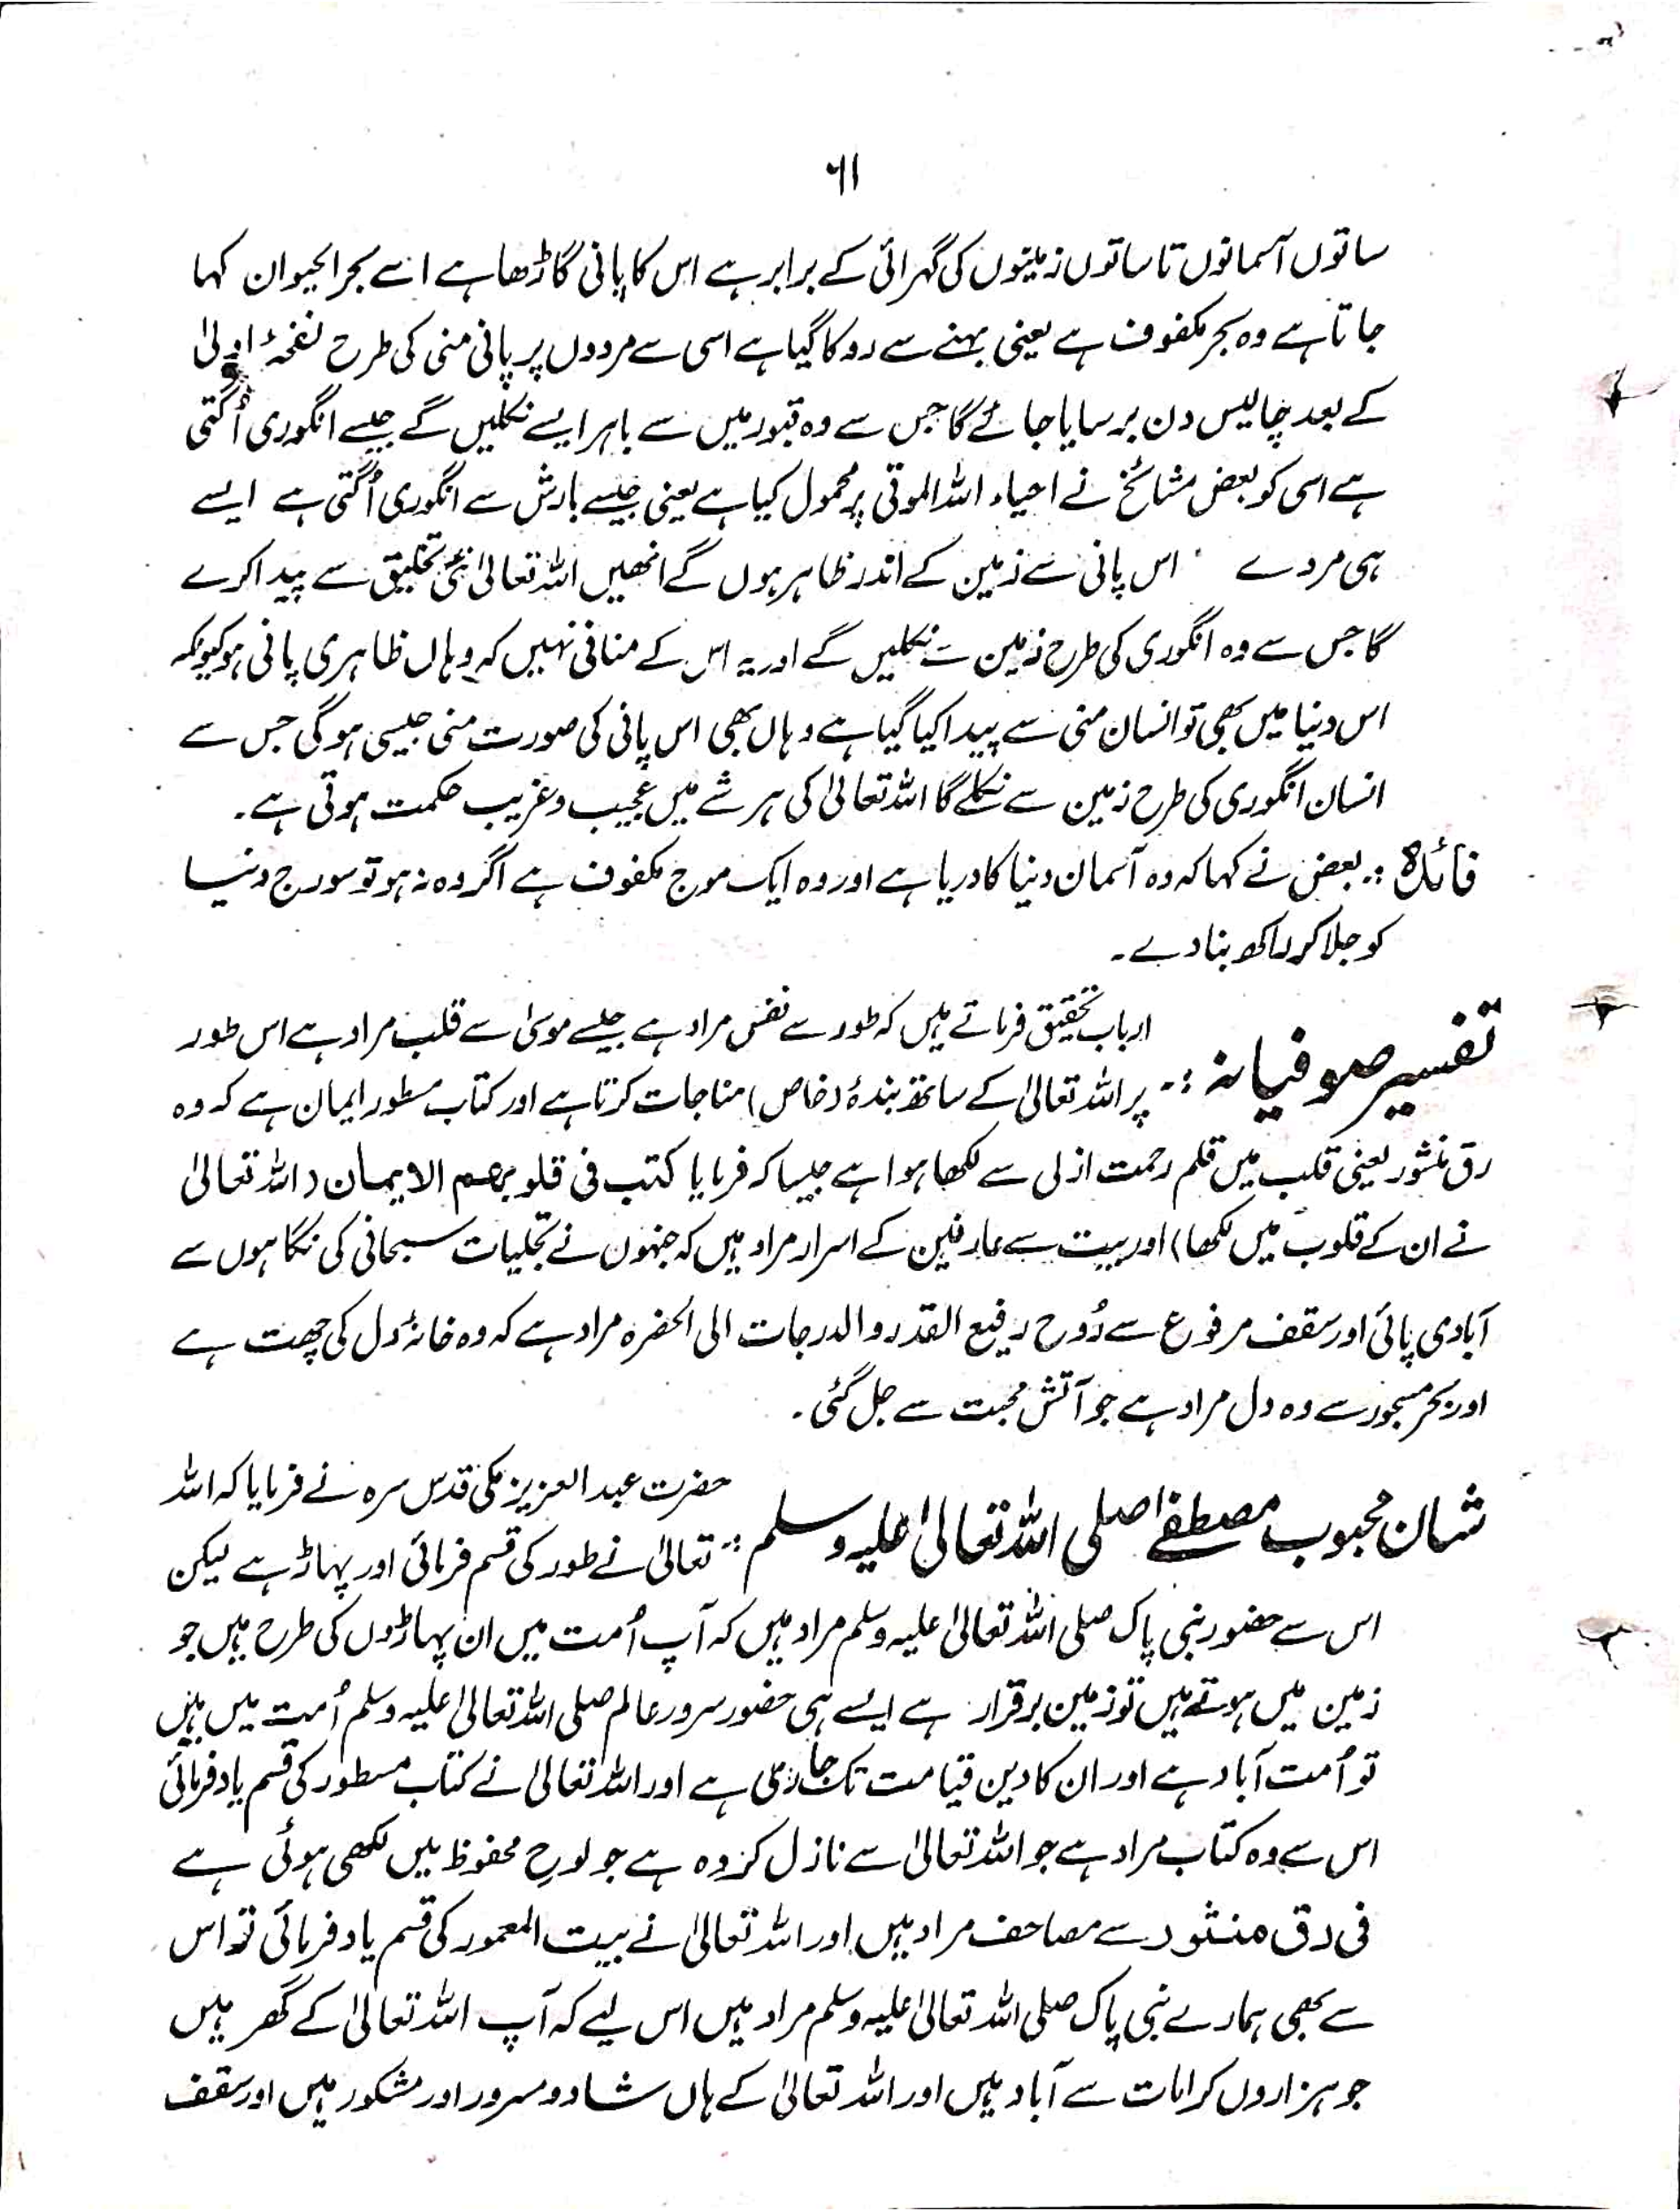 ٦١
ساتوں آسمانوں تا ساتوں زمینوں کی گہرائی کے برابر ہے اس کا پانی گاڑھا ہے اسے بحر الحیوان کہا
جاتا ہے وہ بحر مکفوف ہے یعنی بہنے سے روکا گیا ہے اسی سے مردوں پر پانی منی کی طرح نفخۂ اولیٰ
کے بعد چالیس دن برسایا جائے گا جس سے وہ قبور میں سے باہر ایسے نکلیں گے جیسے انگوری اُگتی
ہے اسی کو بعض مشائخ نے احیاء اللہ الموتی پر محمول کیا ہے یعنی جیسے بارش سے انگوری اُگتی ہے ایسے
ہی مردے اس پانی سے زمین کے اندر ظاہر ہوں گے انھیں اللہ تعالیٰ نئی تخلیق سے پیدا کرے
گا جس سے وہ انگوری کی طرح زمین سے نکلیں گے اور یہ اس کے منافی نہیں کہ وہاں ظاہری پانی ہو کیونکہ
اس دنیا میں بھی تو انسان منی سے پیدا کیا گیا ہے وہاں بھی اس پانی کی صورت منی جیسی ہوگی جس سے
انسان انگوری کی طرح زمین سے نکلے گا اللہ تعالیٰ کی ہر شے میں عجیب و غریب حکمت ہوتی ہے۔
فائدہ :۔ بعض نے کہا کہ وہ آسمان دنیا کا دریا ہے اور وہ ایک موج مکفوف ہے اگر وہ نہ ہو تو سورج دنیا
کو جلا کر راکھ بنا دے۔
تفسیر صوفیانہ :۔ ارباب تحقیق فرماتے ہیں کہ طور سے نفس مراد ہے جیسے موسیٰ سے قلب مراد ہے اس طور
پر اللہ تعالیٰ کے ساتھ بندۂ (خاص) مناجات کرتا ہے اور کتاب مسطور ایمان ہے کہ وہ
رق منشور یعنی قلب میں قلم رحمت ازلی سے لکھا ہوا ہے جیسا کہ فرمایا کتب فی قلوبھم الایمان (اللہ تعالیٰ
نے ان کے قلوب میں لکھا) اور بیت سے عارفین کے اسرار مراد ہیں کہ جنہوں نے تجلیات سبحانی کی نگاہوں سے
آبادی پائی اور سقف مرفوع سے رُوح رفیع القدر والدرجات الی الحضرہ مراد ہے کہ وہ خانۂ دل کی چھت ہے
اور بحر مسجور سے وہ دل مراد ہے جو آتش محبت سے جل گئی۔
شان محبوب مصطفےٰ صلی اللہ تعالیٰ علیہ وسلم :۔ حضرت عبد العزیز مکی قدس سرہ نے فرمایا کہ اللہ
تعالیٰ نے طور کی قسم فرمائی اور پہاڑ ہے لیکن
اس سے حضور نبی پاک صلی اللہ تعالیٰ علیہ وسلم مراد ہیں کہ آپ اُمت میں ان پہاڑوں کی طرح ہیں جو
زمین میں ہوتے ہیں تو زمین برقرار ہے ایسے ہی حضور سرور عالم صلی اللہ تعالیٰ علیہ وسلم اُمت میں ہیں
تو اُمت آباد ہے اور ان کا دین قیامت تک جاری ہے اور اللہ تعالیٰ نے کتاب مسطور کی قسم یاد فرمائی
اس سے وہ کتاب مراد ہے جو اللہ تعالیٰ سے نازل کردہ ہے جو لوح محفوظ میں لکھی ہوئی ہے
فی رق منشور سے مصاحف مراد ہیں اور اللہ تعالیٰ نے بیت المعمور کی قسم یاد فرمائی تو اس
سے بھی ہمارے نبی پاک صلی اللہ تعالیٰ علیہ وسلم مراد ہیں اس لیے کہ آپ اللہ تعالیٰ کے گھر ہیں
جو ہزاروں کرامات سے آباد ہیں اور اللہ تعالیٰ کے ہاں شاد و مسرور اور مشکور ہیں اور سقف